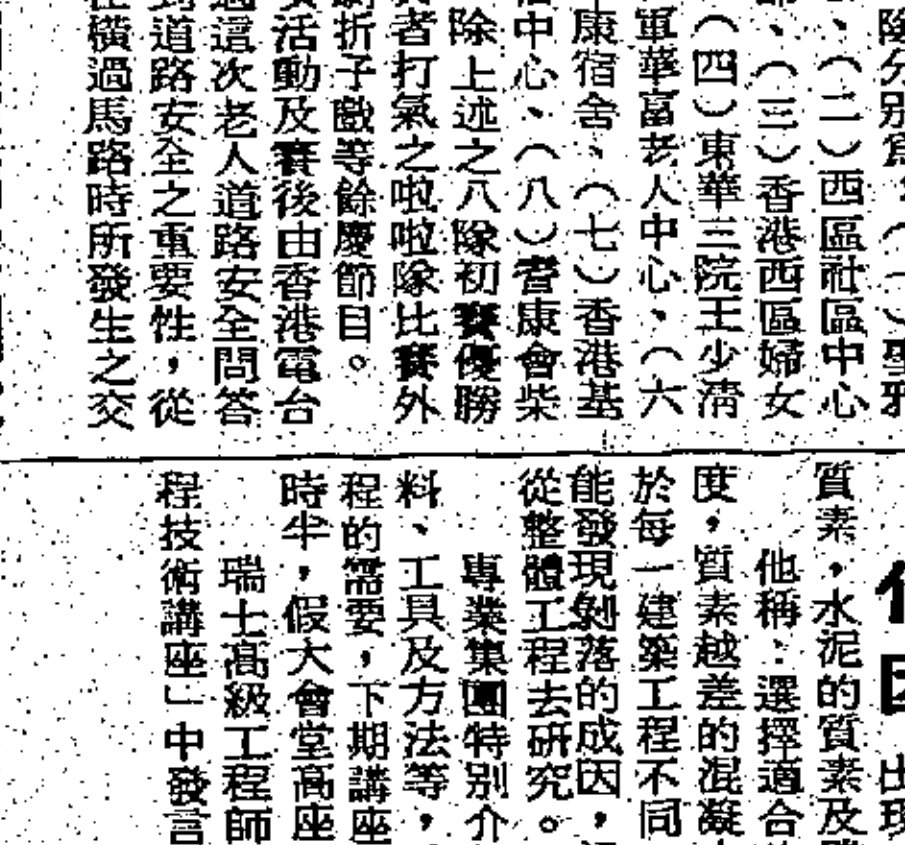 隊分別爲：（一）聖雅
、（二）西區社區中心
、（三）香港西區婦女
（四）東華三院王少清
軍華富老人中心、（六
康宿舍、（七）香港基
中心、（八）耆康會柴
除上述之八隊初賽優勝
者打氣之啦啦隊比賽外
折子戲等餘慶節目。
活動及賽後由香港電台
這次老人道路安全問答
道路安全之重要性，從
橫過馬路時所發生之交
出現
質素，水泥的質素及
他稱：選擇適合
度，質素越差的混凝
於每一建築工程不同
能發現剝落的成因，
從整體工程去研究。
專業集團特別介
料、工具及方法等，
程的需要，下期講座
時半，假大會堂高座
瑞士高級工程師
程技術講座」中發言